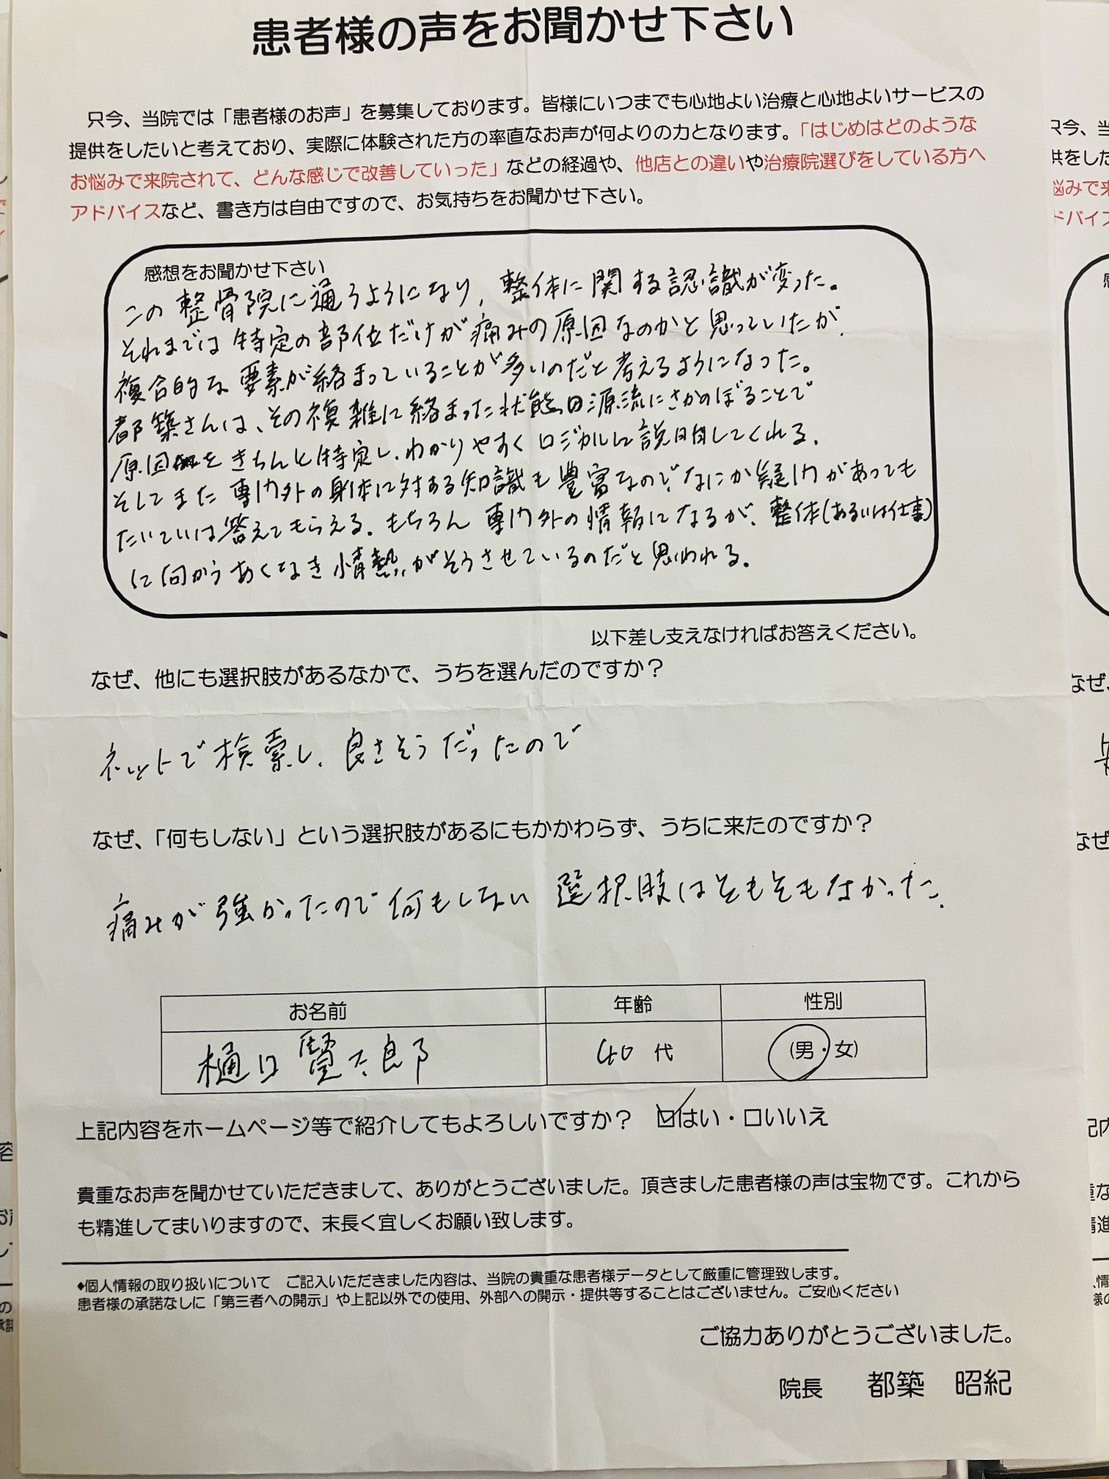 患者様の声をお聞かせ下さい
只今、当院では「患者様のお声」を募集しております。皆様にいつまでも心地よい治療と心地よいサービスの
提供をしたいと考えており、実際に体験された方の率直なお声が何よりの力となります。「はじめはどのような
お悩みで来院されて、どんな感じで改善していった」などの経過や、他店との違いや治療院選びをしている方へ
アドバイスなど、書き方は自由ですので、お気持ちをお聞かせ下さい。
感想をお聞かせ下さい
この整骨院に通うようになり、整体に関する認識が変った。
それまでは特定の部位だけが痛みの原因なのかと思っていたが、
複合的な要素が絡まっていることが多いのだと考えるようになった。
都築さんは、その複雑に絡まった状態の源流にさかのぼることで
原因をきちんと特定し、わかりやすくロジカルに説明してくれる。
そしてまた専門外の身体に対する知識も豊富なので、なにか疑問があっても
たいていは答えてもらえる。もちろん専門外の情報になるが、整体(あるいは仕事)
に向かうあくなき情熱がそうさせているのだと思われる。
以下差し支えなければお答えください。
なぜ、他にも選択肢があるなかで、うちを選んだのですか?
ネットで検索し、良さそうだったので
なぜ、「何もしない」という選択肢があるにもかかわらず、うちに来たのですか?
痛みが強かったので何もしない選択肢はそもそもなかった。
お名前 年齢 性別
樋口賢太郎 40代 (男・女)
上記内容をホームページ等で紹介してもよろしいですか? ☑はい・□いいえ
貴重なお声を聞かせていただきまして、ありがとうございました。頂きました患者様の声は宝物です。これから
も精進してまいりますので、末長く宜しくお願い致します。
◆個人情報の取り扱いについて ご記入いただきました内容は、当院の貴重な患者様データとして厳重に管理致します。
患者様の承諾なしに「第三者への開示」や上記以外での使用、外部への開示・提供等することはございません。ご安心ください
ご協力ありがとうございました。
院長 都築 昭紀